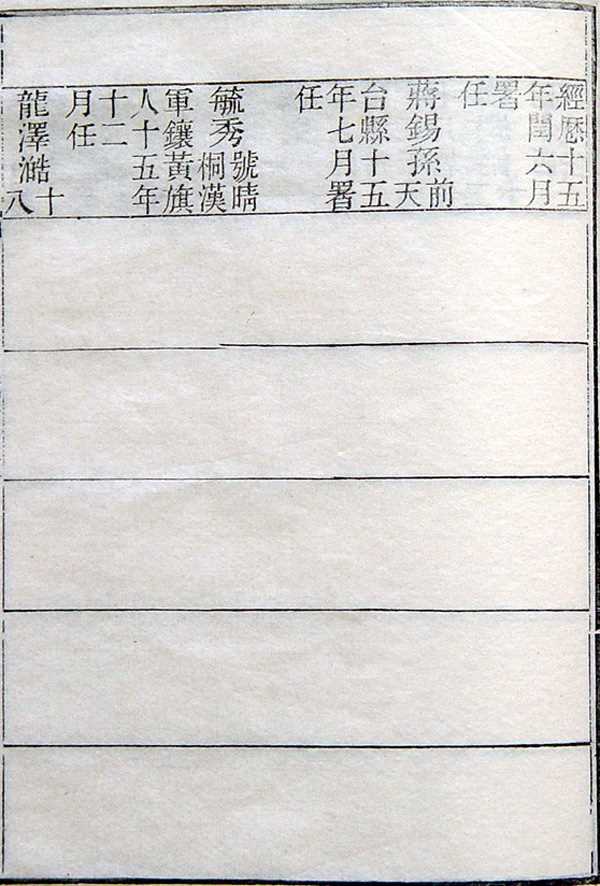 經厯十五
年閏六月
署
任
蔣錫孫前
天
台縣十五
年七月署
任
毓秀號晴
桐漢
軍鑲黃旗
人十五年
十二
月任
龍澤澔十
八